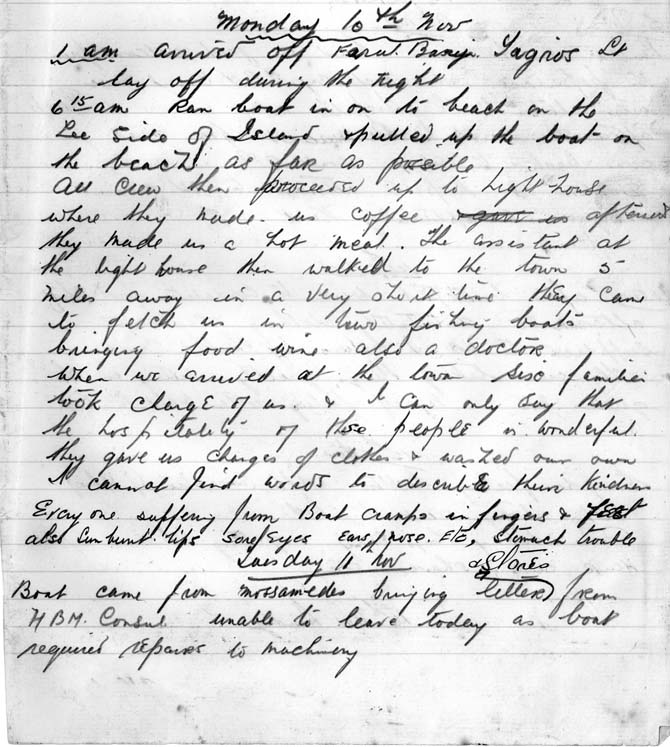 Monday 10th Nov
1 am arrived off Farol. Tagros Lt
lay off during the night
6 15 am Ran boat in on to beach on the
Lee side of Island & pulled up the boat on
the beach as far as possible
all crew then proceeded up to Light house
where they made us coffee & gave us afterward
they made us a hot meal. The assistant at
the light house then walked to the town 5
miles away in a very short time they came
to fetch us in two fishing boats
bringing food wine also a doctor
when we arrived at the town six families
took charge of us & I can only say that
the hospitality of these people is wonderful.
they gave us changes of clothes & washed our own
I cannot find words to describe their kindness
Every one suffering from Boat cramps in fingers & feet
also sunburnt lips sore eyes ears/nose. Etc, stomach trouble
Tuesday 11 Nov & Stores
Boat came from Mossamedes bringing letter from
H B M. Consul unable to leave today as boat
required repairs to machinery